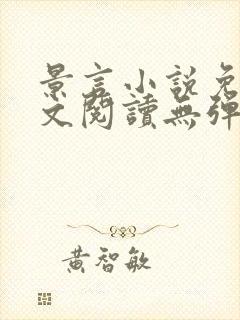 景言小說免
文閱讀無彈
黃智敏